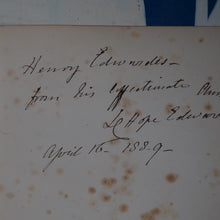 Henry Edwardes -
from his affectionate Aunt
L Hope Edwar
April 16 - 1889 -